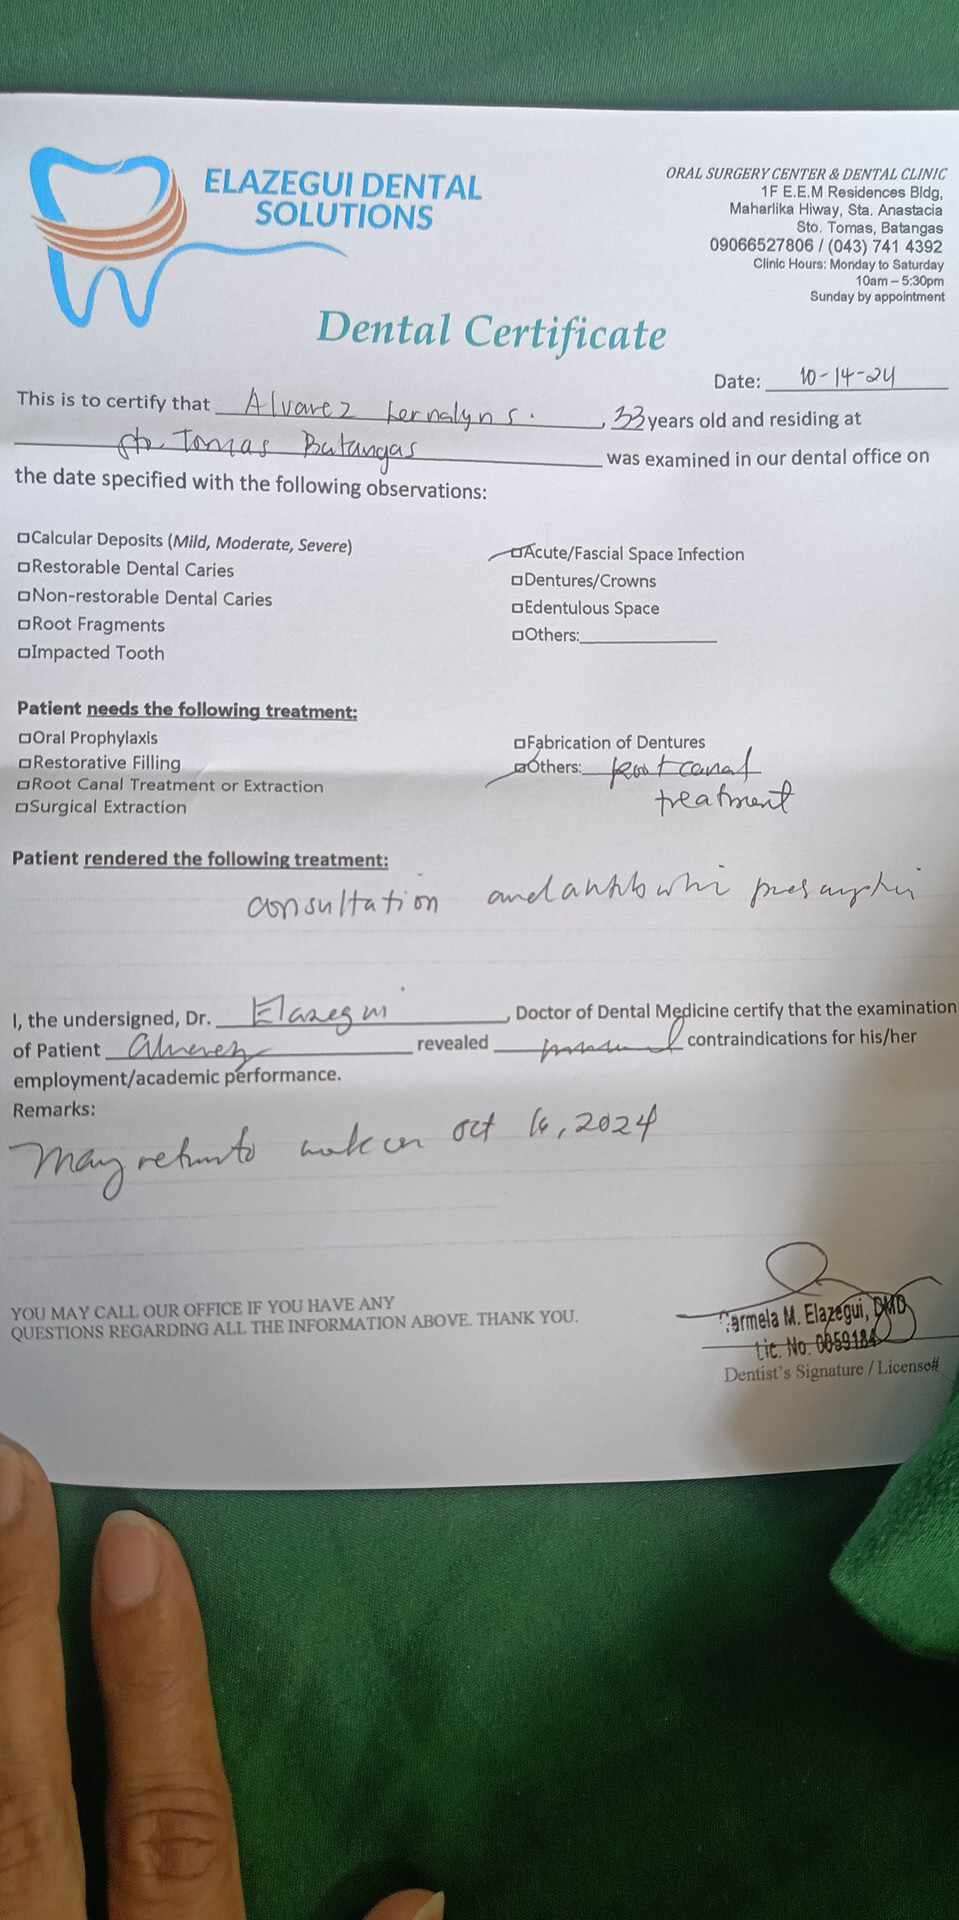 ELAZEGUI DENTAL
SOLUTIONS
ORAL SURGERY CENTER & DENTAL CLINIC
1F E.E.M Residences Bldg,
Maharlika Hiway, Sta. Anastacia
Sto. Tomas, Batangas
09066527806 / (043) 741 4392
Clinic Hours: Monday to Saturday
10am – 5:30pm
Sunday by appointment
Dental Certificate
Date: 10-14-24
This is to certify that Alvarez S. , 33 years old and residing at
Sto Tomas Batangas was examined in our dental office on
the date specified with the following observations:
Calcular Deposits (Mild, Moderate, Severe)
Restorable Dental Caries
Non-restorable Dental Caries
Root Fragments
Impacted Tooth
Acute/Fascial Space Infection
Dentures/Crowns
Edentulous Space
Others:
Patient needs the following treatment:
Oral Prophylaxis
Restorative Filling
Root Canal Treatment or Extraction
Surgical Extraction
Fabrication of Dentures
Others: Root canal
treatment
Patient rendered the following treatment:
consultation and
I, the undersigned, Dr. Elazegui , Doctor of Dental Medicine certify that the examination
of Patient Alvarez revealed contraindications for his/her
employment/academic performance.
Remarks:
May return to work on Oct 16, 2024
YOU MAY CALL OUR OFFICE IF YOU HAVE ANY
QUESTIONS REGARDING ALL THE INFORMATION ABOVE. THANK YOU.
Carmela M. Elazegui, DMD
Lic. No. 0059184
Dentist's Signature / License#